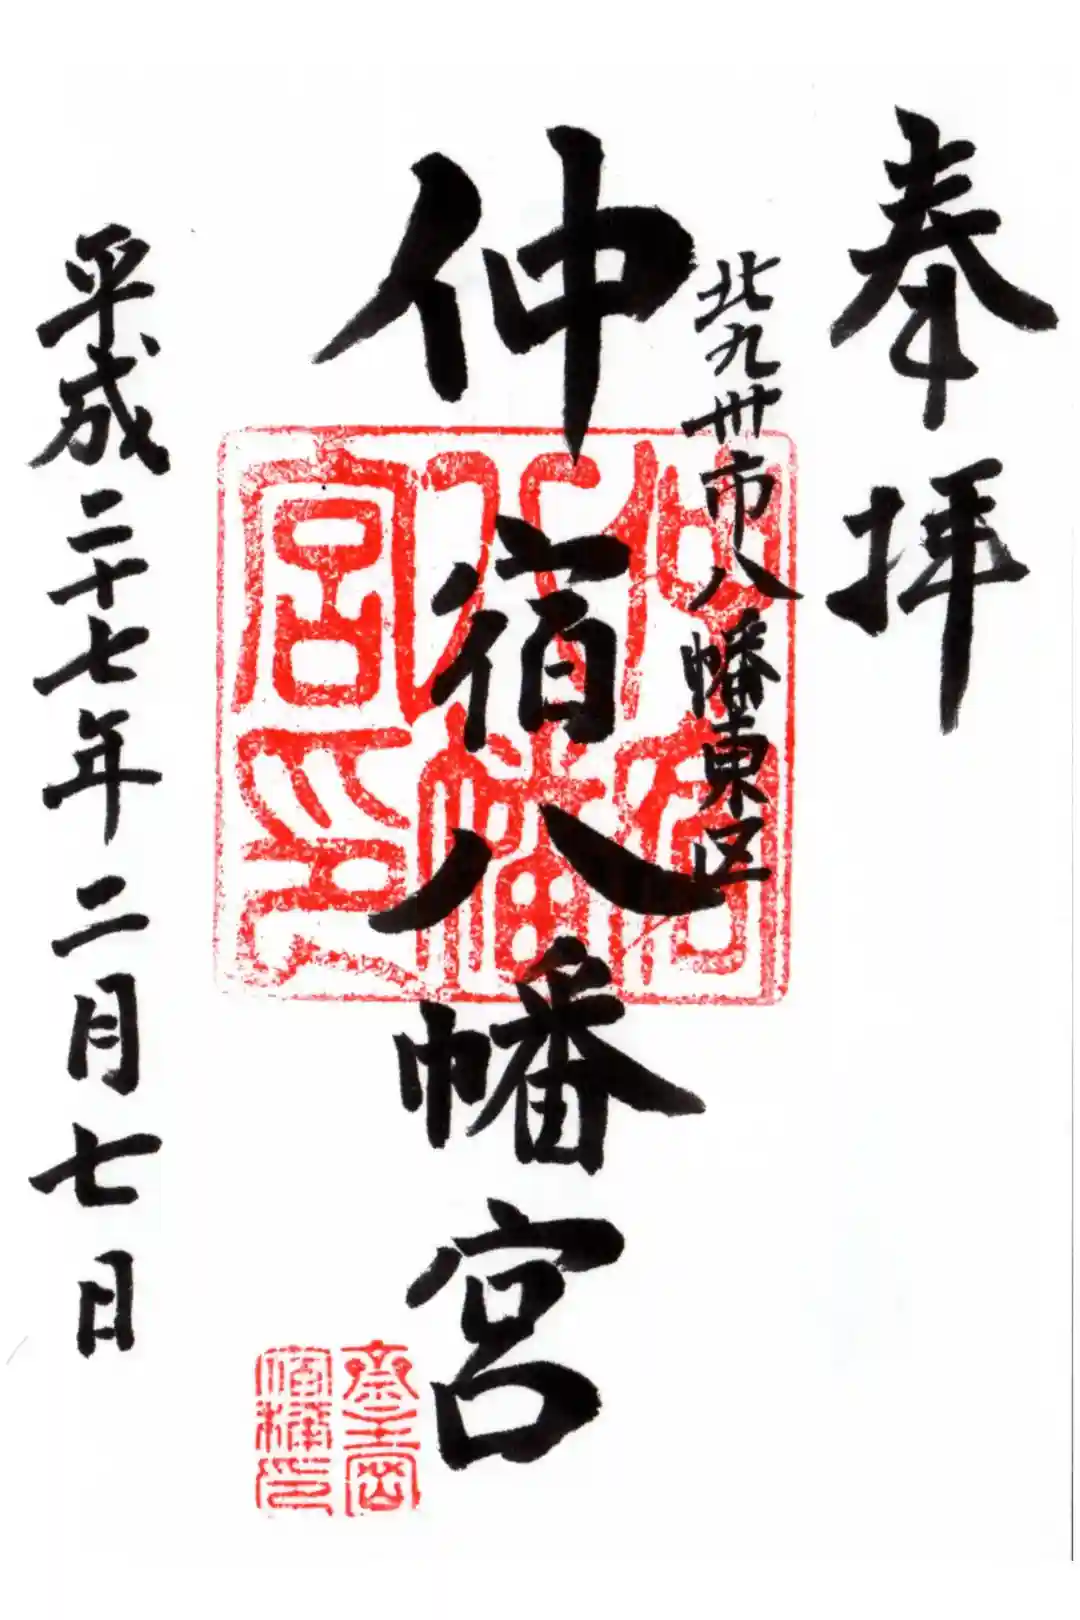 奉拝
北九州市八幡東区
仲宿八幡宮
平成二十七年二月七日
仲宿
八幡
宮印